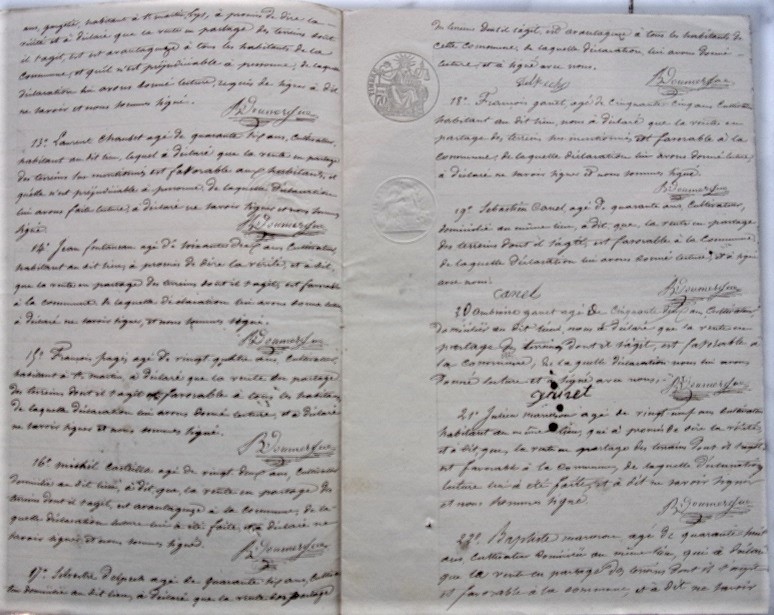 ans, habitant à St martin, a promis de dire la
vérité et a déclaré que la vente en partage des terrains dont
il s'agit, est avantageuse à tous les habitants de la
Commune, et qu'il n'est préjudiciable à personne, de laquelle
déclaration lui avons donné lecture, requis de signer a dit
ne savoir et nous sommes signé.
13º Laurent agé de quarante ans, Cultivateur,
habitant au dit lieu, lequel a déclaré que la vente en partage
des terrains sus mentionnés est favorable aux habitants, et
qu'elle n'est préjudiciable à personne, de laquelle déclaration
lui avons faite lecture, a déclaré ne savoir signer et nous sommes
signé.
14º Jean agé de soixante ans, Cultivateur
habitant au dit lieu, a promis de dire la vérité, et a dit,
que la vente en partage des terrains dont il s'agit, est favorable
à la commune, de laquelle déclaration lui avons donné lecture
a déclaré ne savoir signer, et nous sommes signé.
15º François pagès agé de vingt quatre ans, Cultivateur,
habitant à St martin, a déclaré que la vente en partage
des terrains dont il s'agit est favorable à tous les habitants,
de laquelle déclaration lui avons donné lecture, et a déclaré
ne savoir signer et nous sommes signé.
16º michel castella agé de vingt ans, Cultivateur
domicilié au dit lieu, a dit, que la vente en partage des
terrains dont il s'agit, est avantageuse à la commune, de la-
quelle déclaration lecture lui a été faite, et a déclaré ne
savoir signer, et nous sommes signé.
17º Silvestre agé de quarante ans, Cultiva-
teur domicilié au dit lieu, a déclaré que la vente en partage
des terrains dont il s'agit, est avantageuse à tous les habitants de
cette commune, de laquelle déclaration lui avons donné
lecture et a signé avec nous.
TIMBRE
18º François ganet, agé de Cinquante Cinq ans Cultivateur
habitant au dit lieu, nous a déclaré que la vente en
partage des terrains sus mentionnés est favorable à la
commune, de laquelle déclaration lui avons donné lecture,
a déclaré ne savoir signer et nous sommes signé.
19º Sébastien Canel agé de quarante ans, Cultivateur,
domicilié au même lieu, a dit, que la vente en partage
des terrains dont il s'agit, est favorable à la Commune,
de laquelle déclaration lui avons donné lecture, et a signé
avec nous.
Canel
20 ganet agé de Cinquante ans, Cultivateur
domicilié au dit lieu, nous a déclaré que la vente en
partage des terrains dont il s'agit, est favorable à
la commune, de laquelle déclaration nous lui avons
donné lecture et a signé avec nous.
21º Julien agé de vingt neuf ans Cultivateur
habitant au même lieu, qui a promis de dire la vérité
et a dit que, la vente en partage des terrains dont il s'agit
est favorable à la Commune, de laquelle déclaration
lecture lui a été faite, et a dit ne savoir signer
et nous sommes signé
22º Baptiste agé de quarante huit
ans, cultivateur domicilié au même lieu, qui a déclaré
que la vente en partage des terrains dont il s'agit
est favorable à la commune et a dit ne savoir